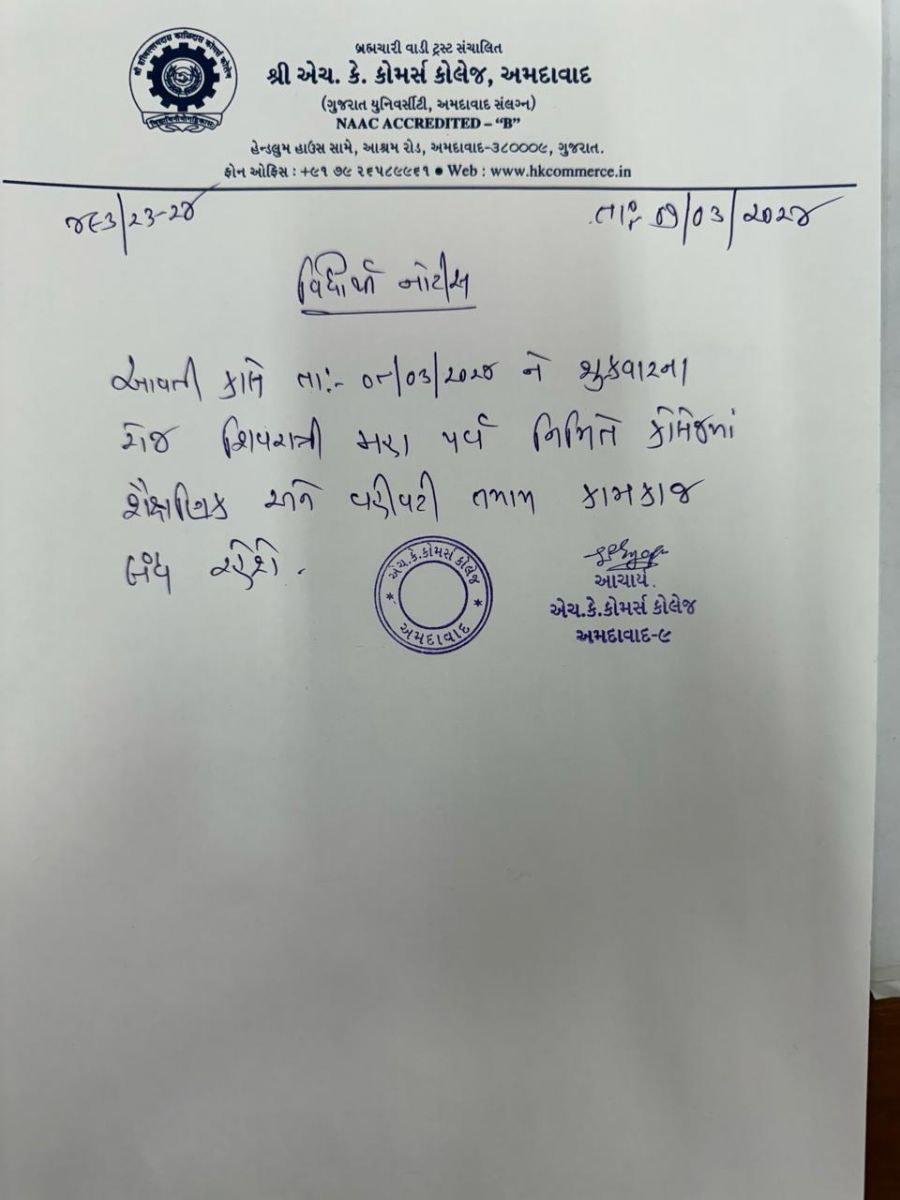 બ્રહ્મચારી વાડી ટ્રસ્ટ સંચાલિત
શ્રી એચ. કે. કોમર્સ કોલેજ, અમદાવાદ
(ગુજરાત યુનિવર્સીટી, અમદાવાદ સંલગ્ન)
NAAC ACCREDITED – “B”
હેન્ડલુમ હાઉસ સામે, આશ્રમ રોડ, અમદાવાદ-૩૮૦૦૦૯, ગુજરાત.
ફોન ઓફિસ : +૯૧ ૭૯ ૨૬૫૮૯૯૬૧ ● Web : www.hkcommerce.in
૪૯૩/૨૩-૨૪
તાઃ ૦૭/૦૩/૨૦૨૪
વિદ્યાર્થી નોટીસ
આવતી કાલે તાઃ- ૦૮/૦૩/૨૦૨૪ ને શુક્રવારના
રોજ શિવરાત્રી મહા પર્વ નિમિતે કોલેજમાં
શૈક્ષણિક અને વહીવટી તમામ કામકાજ
બંધ રહેશે.
એચ.કે.કોમર્સ કોલેજ
અમદાવાદ
આચાર્ય.
એચ.કે.કોમર્સ કોલેજ
અમદાવાદ-૯